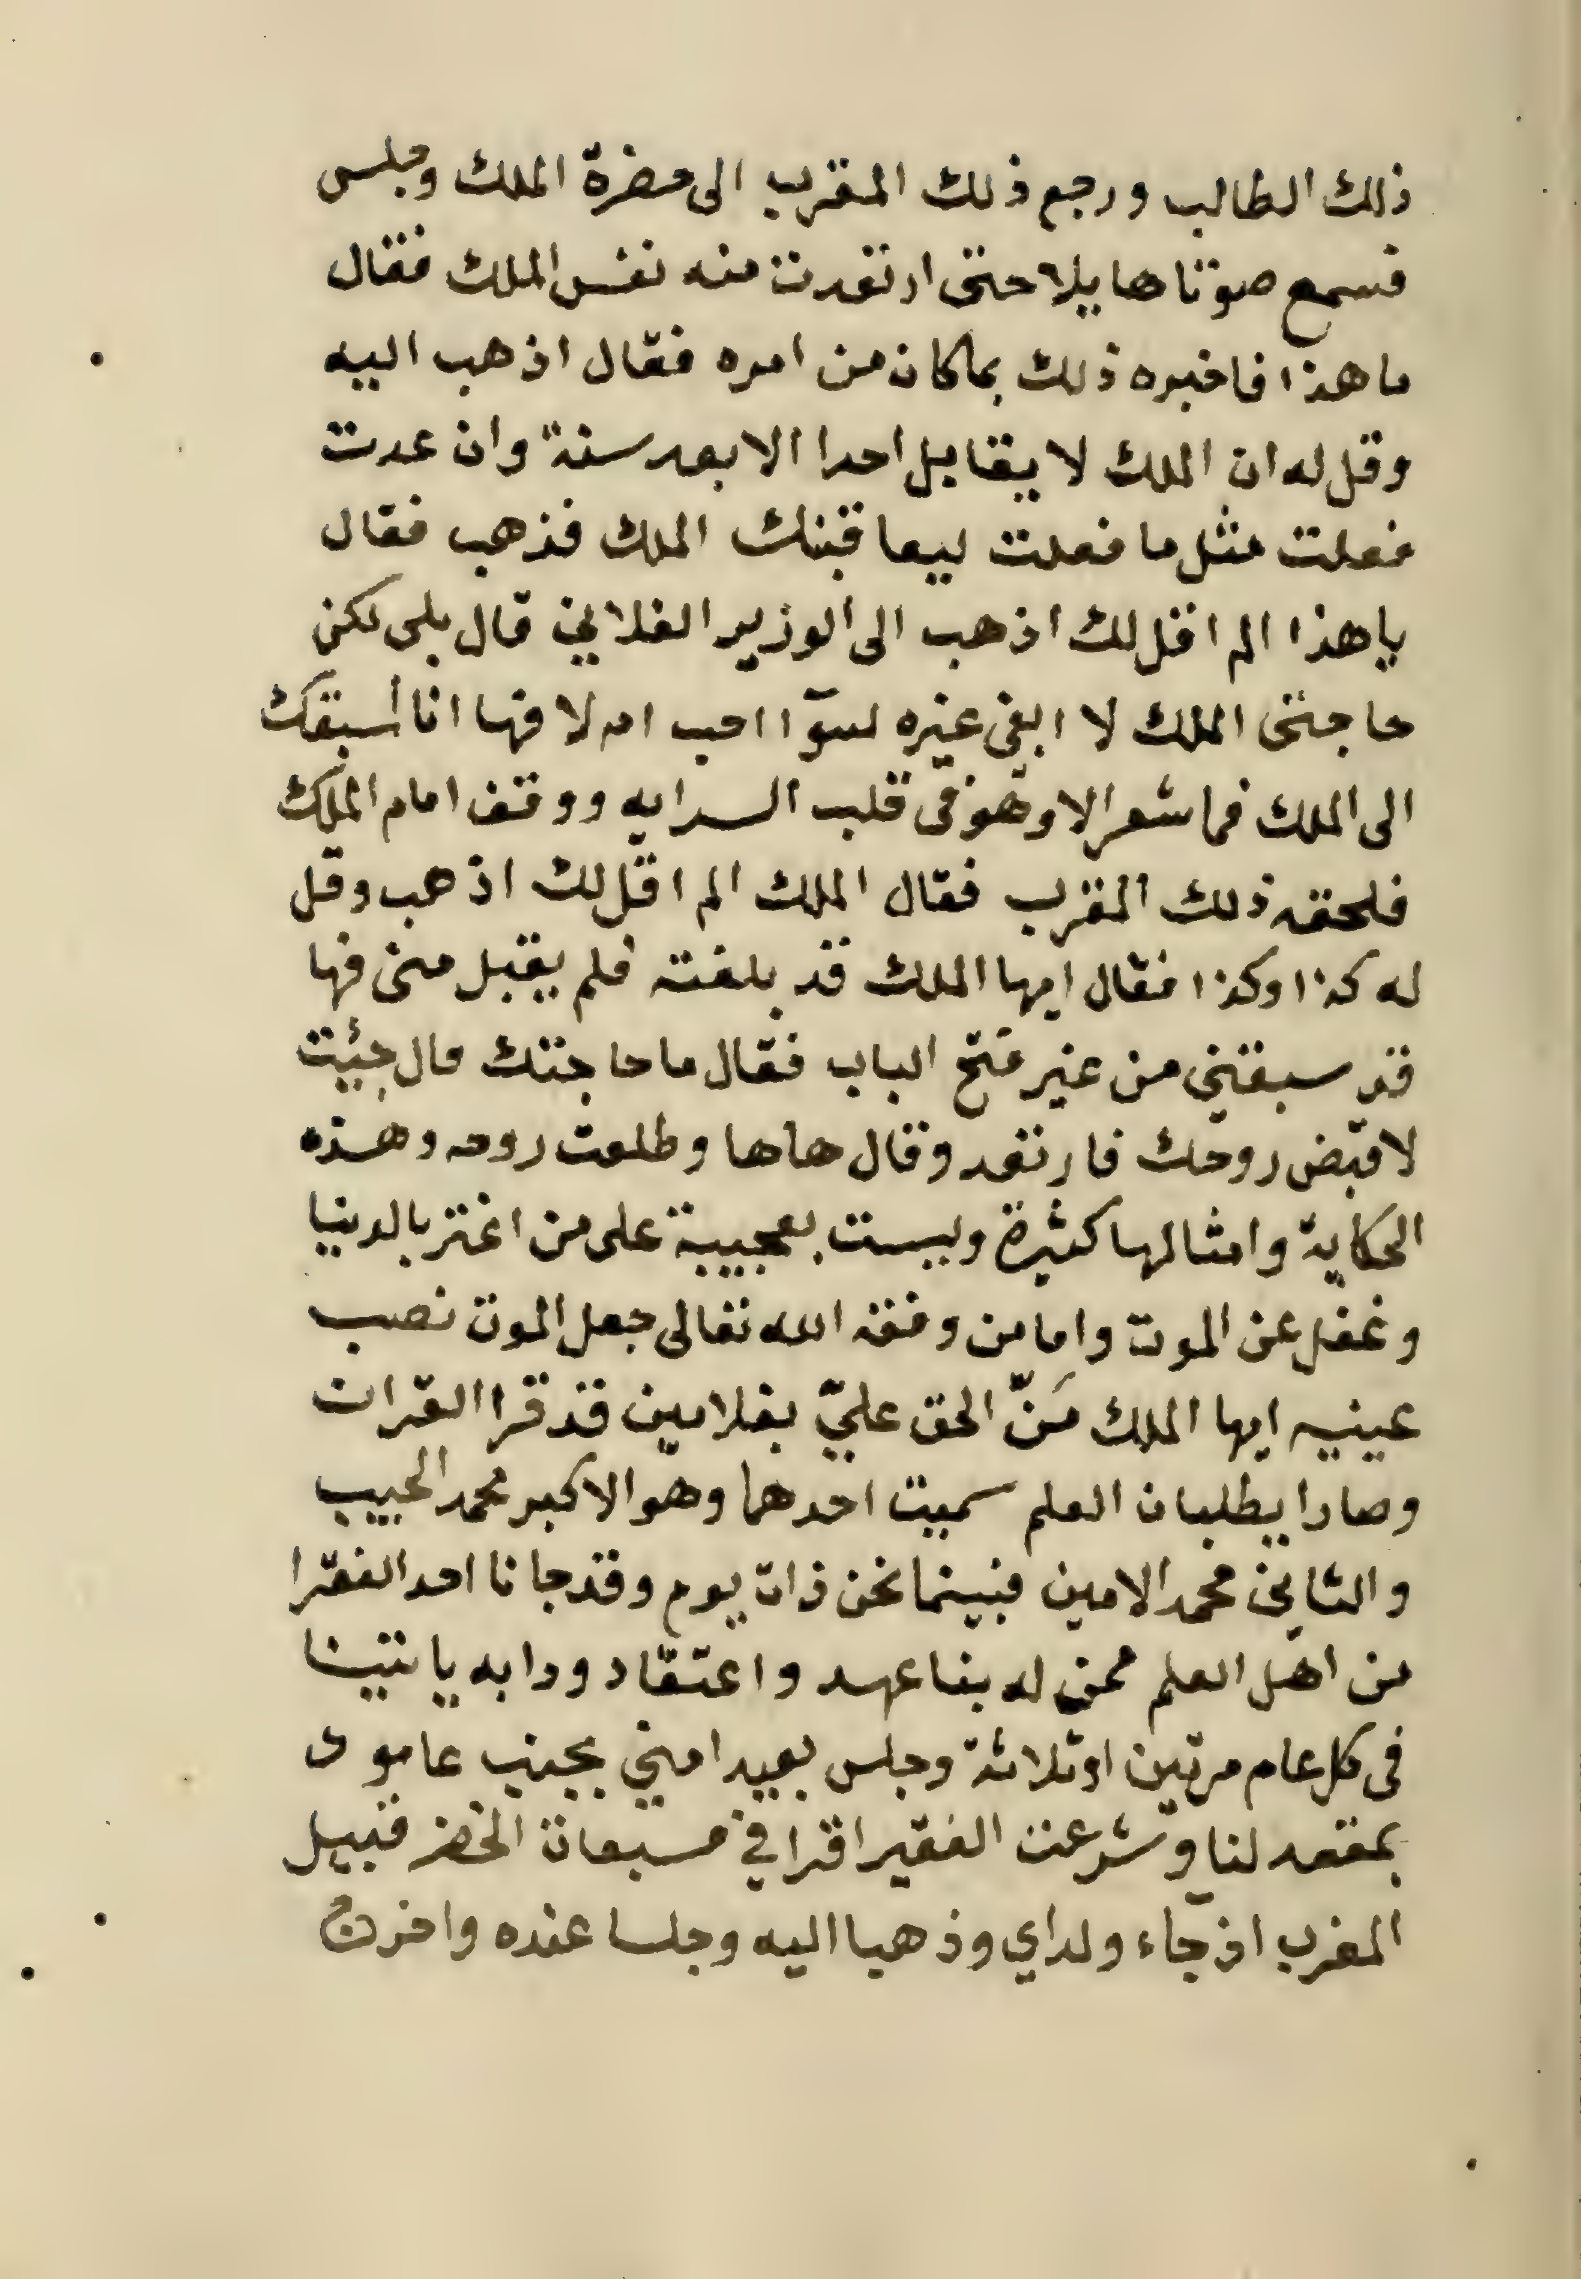 ذلك الطالب ورجع ذلك المقرب الى حضرة الملك وجلس
فسمع صوتا هايلا حتى ارتعدت منه نفس الملك فقال
ما هذا فاخبره ذلك بما كان من امره فقال اذهب اليه
وقل له ان الملك لا يقابل احدا الا بعد سنة وان عدت
فعلت مثل ما فعلت ليعاقبنك الملك فذهب فقال
يا هذا الم اقل لك اذهب الى الوزير الفلاني قال بلى لكن
حاجتى الملك لا ابغى غيره لسوٓا احب ام لا فها انا أسبقك
الى الملك فما شعر الا وهو فى قلب السرايه ووقف امام الملك
فلحقه ذلك المقرب فقال الملك الم اقل لك اذهب وقل
له كذا وكذا فقال ايها الملك قد بلغته فلم يقبل منى فها
قد سبقني من غير فتح الباب فقال ما حاجتك قال جئيت
لاقبض روحك فارتعد وقال هاها وطلعت روحه وهذه
الحكاية وامثالها كثيرة وليست بعجيبة على من اغتر بالدنيا
وغفل عن الموت واما من وفقه الله تعالى جعل الموت نصب
عينيه ايها الملك مَنّ الحق عليّ بغلامين قد قرا القران
وصارا يطلبان العلم سميت احدهما وهو الاكبر محمد الحبيب
والثاني محمد الامين فبينما نحن ذات يوم وقد جانا احد الفقرا
من اهل العلم ممن له بنا عهد واعتقاد ودابه ياتينا
فى كل عام مرتين او ثلاثة وجلس بعيدا مني بجنب عامود
بمقعد لنا وشرعت الفقير اقرا في مسبعات الخضر قبيل
المغرب اذ جٓاء ولداي وذهبا اليه وجلسا عنده واخرج